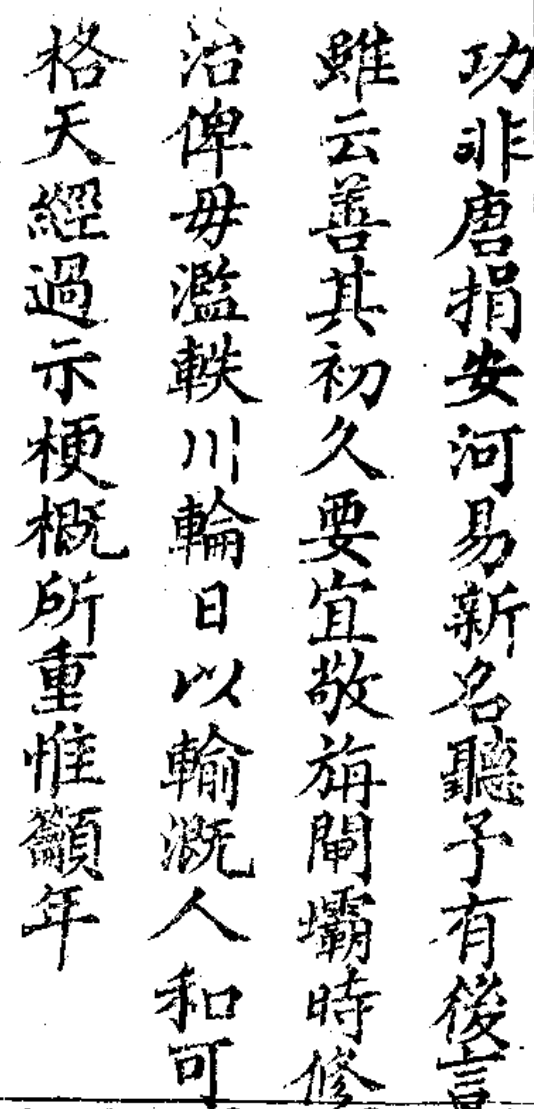 功非唐捐安河易新名聽予有後言
雖云善其初久要宜敬旃閘壩時修
治俾毋濫軼川輪日以輸溉人和可
格天經過示梗概所重惟籲年